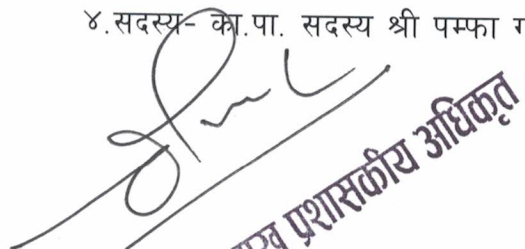 ४.सदस्य- का.पा. सदस्य श्री पम्फा
प्रशासकीय अधिकृत